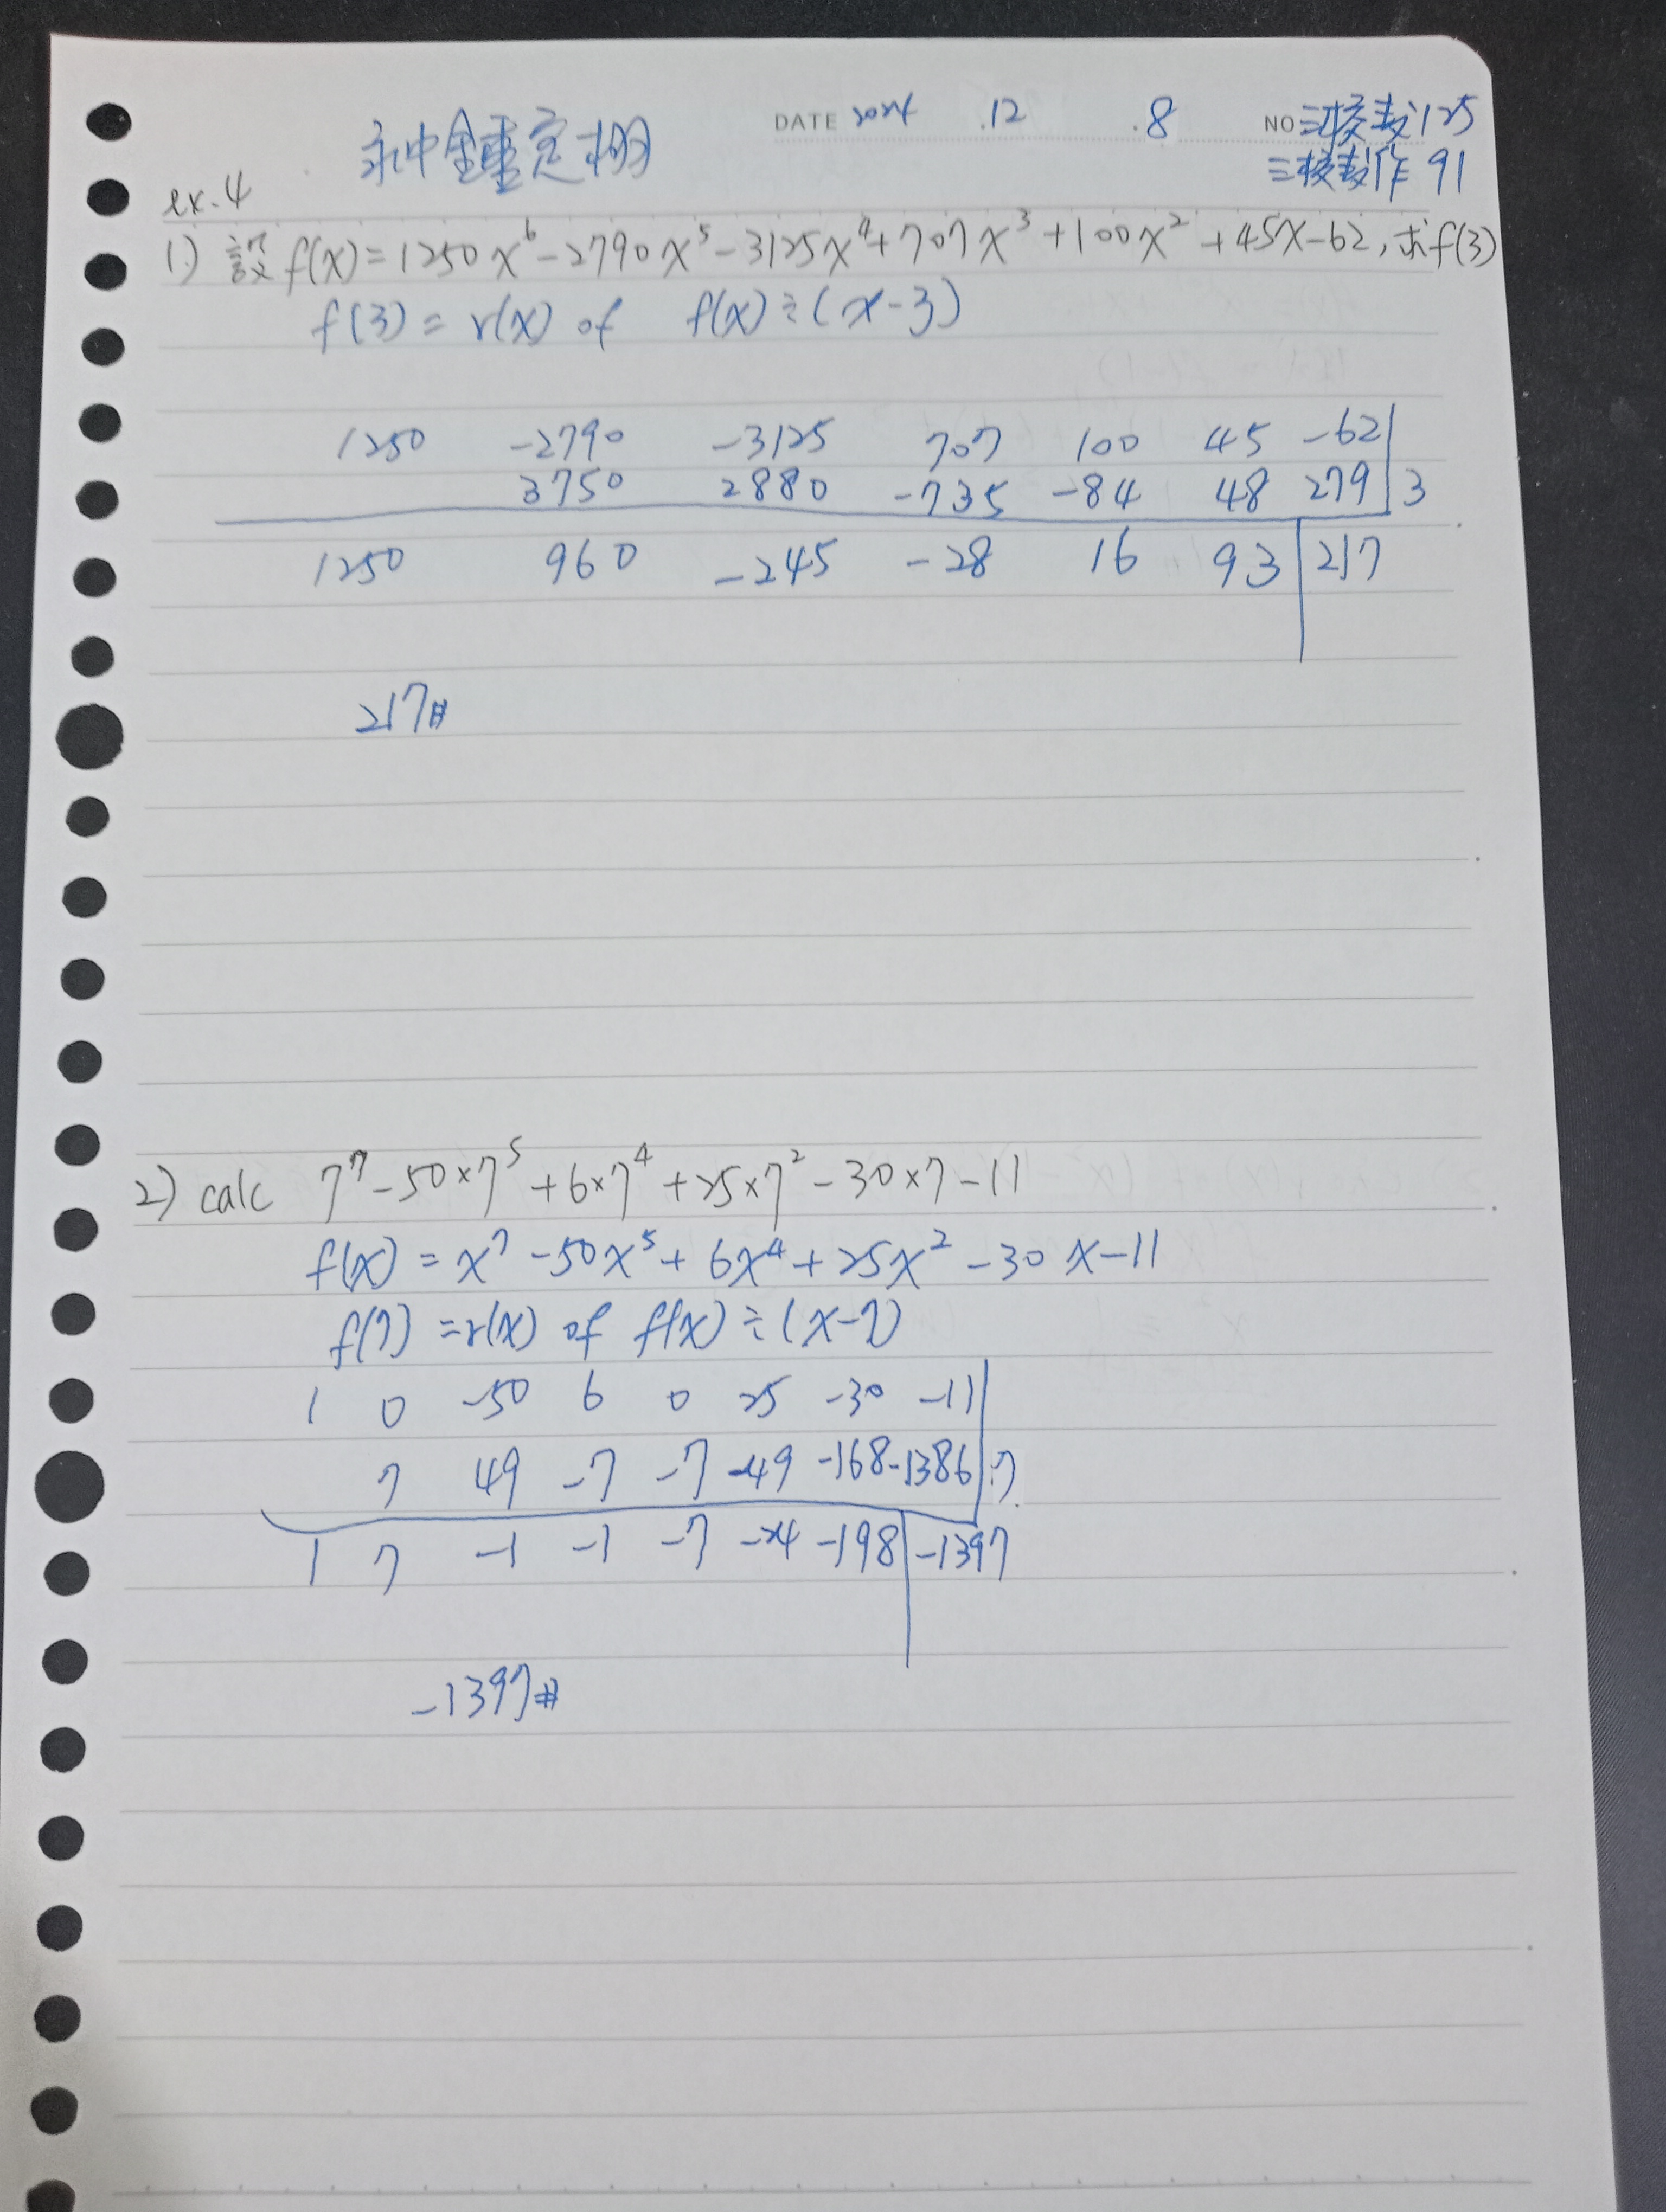 永中鍾定栩 DATE 2024 .12 .8 NO 三校表125
三校表作 91
ex.4
1.) 設 f(x)=1250x⁶-2790x⁵-3125x⁴+707x³+100x²+45x-62, 求f(3)
f(3) = r(x) of f(x)÷(x-3)
1250 -2790 -3125 707 100 45 -62
3750 2880 -735 -84 48 279 3
1250 960 -245 -28 16 93 217
217#
2) calc 7⁷-50×7⁵+6×7⁴+25×7²-30×7-11
f(x) = x⁷-50x⁵+6x⁴+25x²-30x-11
f(7) = r(x) of f(x)÷(x-7)
1 0 -50 6 0 25 -30 -11
7 49 -7 -7 -49 -168 -1386 7
1 7 -1 -1 -7 -24 -198 -1397
-1397#